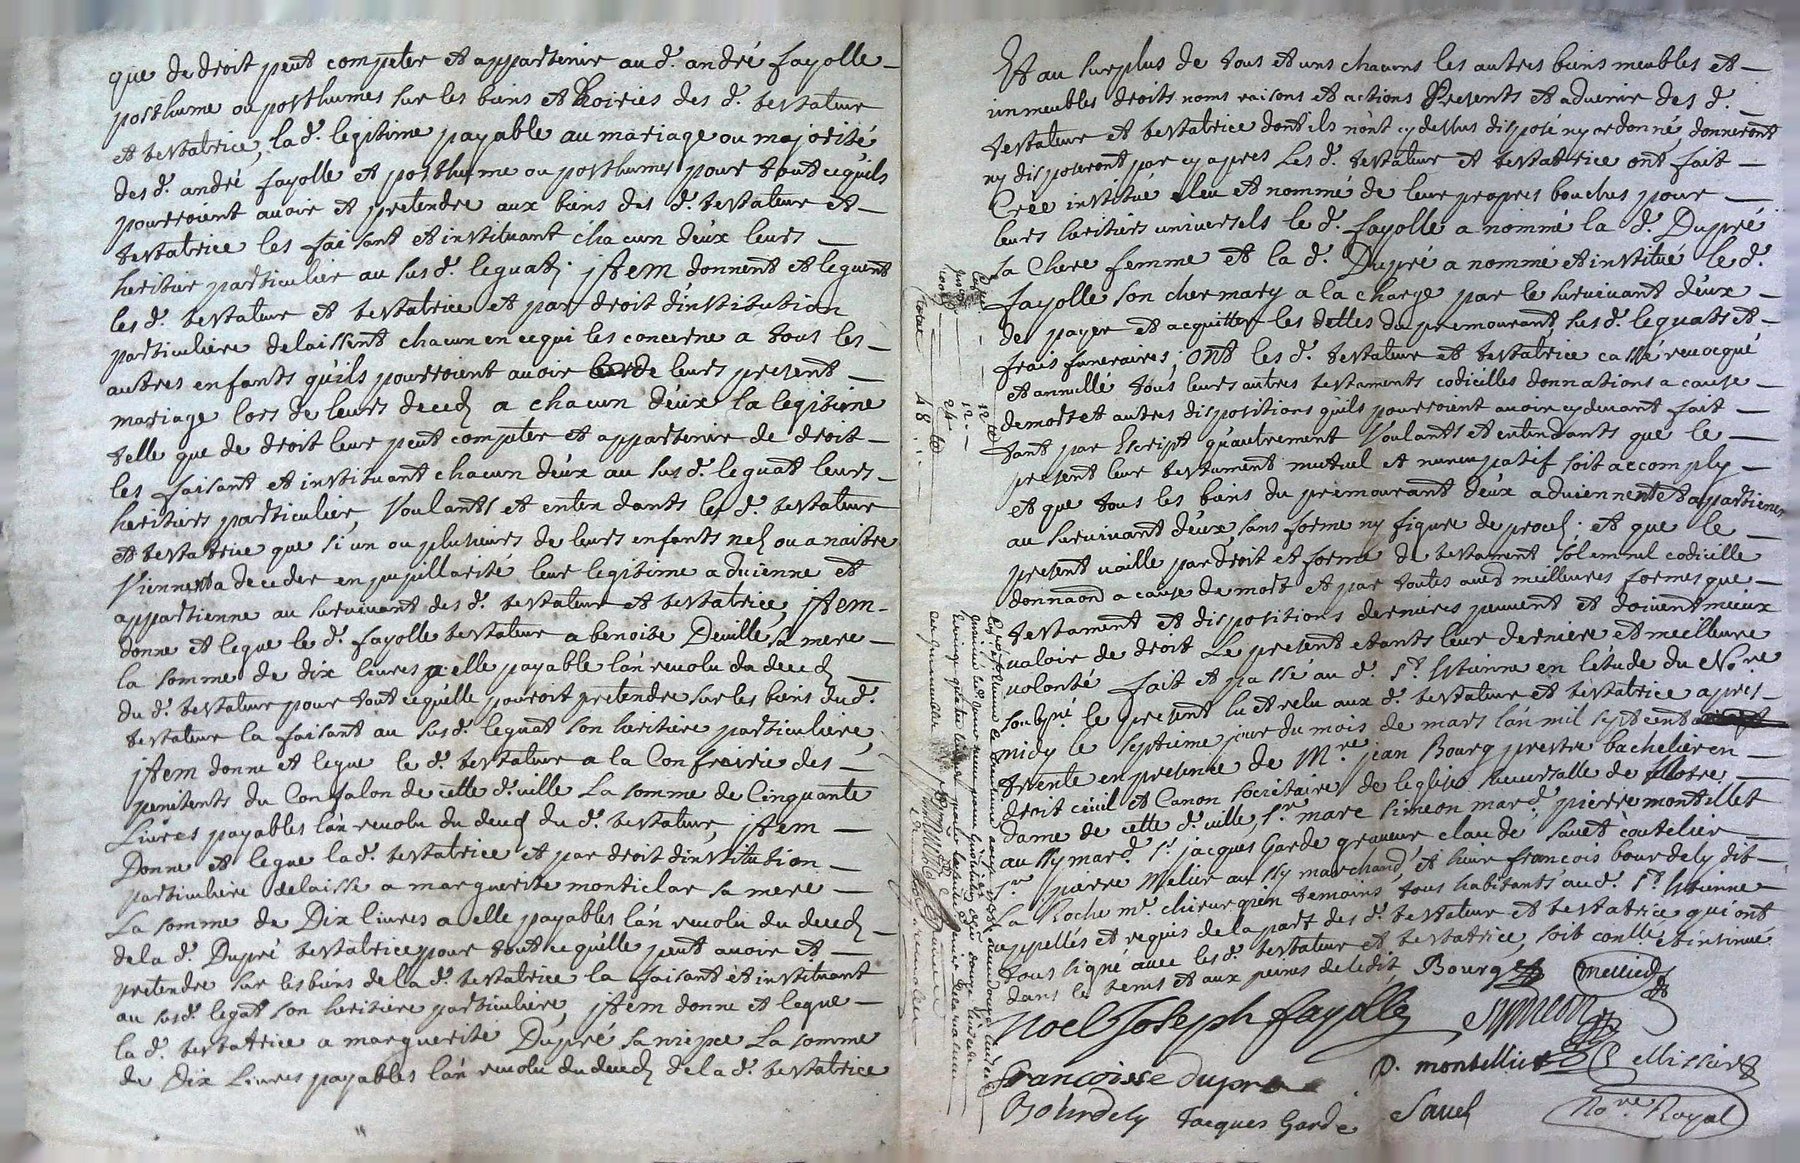 que de droit peut competer et appartenir au d. andré fayolle
posthume ou posthumes sur les biens et hoiries des d. testateur
et testatrice, la d. legitime payable au mariage ou majorité
des d. andré fayolle et posthume ou posthumes pour tout ce quils
pourroient avoir et pretendre aux biens des d. testateur et
testatrice les faisant et instituant chacun d'eux leurs
heritier particulier au susd. leguat; jtem donnent et leguent
les d. testateur et testatrice et par droit d'institution
particuliere delaissent chacun en ce qui les concerne a tous les
autres enfants qu'ils pourroient avoir de leurs present
mariage lors de leurs deced a chacun d'eux la legitime
telle que de droit leur peut competer et appartenir de droit
les faisant et instituant chacun d'eux au susd. leguat leurs
heritiers particulier, Voulants et entendants les d. testateur
et testatrice que si un ou plusieurs de leurs enfants nes ou a naitre
Viennent a deceder en pupillarité leur legitime advienne et
appartienne au survivant des d. testateur et testatrice, jtem
donne et legue le d. fayolle testateur a benoite Deville sa mere
la somme de dix livres a elle payable l'an revolu du deced
du d. testateur pour tout ce qu'elle pouroit pretendre sur les biens du d.
testateur la faisant au susd. leguat son heritiere particuliere,
jtem donne et legue le d. testateur a la Confrairie des
penitents du Confalon de cette d. ville La somme de Cinquante
Livres payables l'an revolu du deced du d. testateur, jtem
Donne et legue la d. testatrice et par droit d'institution
particuliere delaisse a marguerite monticlar sa mere
La somme de Dix livres a elle payables l'an revolu du deced
de la d. Dupré testatrice pour tout ce qu'elle peut avoir et
pretendre sur les biens de la d. testatrice la faisant et instituant
au susd. legat son heritiere particuliere, jtem donne et legue
la d. testatrice a marguerite Dupré sa niepce La somme
de Dix Livres payables l'an revolu du deced de la d. testatrice
Et au surplus de tous et uns chacuns les autres biens meubles et
immeubles droits noms raisons et actions Presents et advenir des d.
testateur et testatrice dont ils n'ont cy dessus disposé ny ordonné donneront
ny disposeront par cy apres Les d. testateur et testatrice ont fait
Créé institué eleu et nommé de leur propres bouches pour
leurs heritiers universels le d. fayolle a nommé la d. Dupré
sa Chere femme et la d. Dupré a nommé et institué le d.
fayolle son cher mary a la charge par le survivant d'eux
de payer et acquitter les dettes du premourant susd. leguats et
frais funeraires; ont les d. testateur et testatrice cassé revocqué
et annullé tous leurs autres testaments codicilles donnations a cause
de mort et autres dispositions quils pourroient avoir cy devant fait
tant par Escript qu'autrement Voulants et entendants que le
present leur testament mutuel et nuncupatif soit accomply
et que tous les biens du premourant d'eux adviennent et appartienent
au survivant d'eux, sans forme ny figure de proces; et que le
present vaille par droit et forme de testament solemnel codicille
donnaon a cause de mort et par toutes aues meilleures formes que
testament et dispositions dernieres peuvent et doivent mieux
valoir de droit Le present etants leur derniere et meilleure
volonté fait et passé au d. St. Estienne en l'étude du Nore
soubsné le present lu et relu aux d. testateur et testatrice apres
midy le septieme jour du mois de mars l'an mil sept cent
trente en presence de Mre. jean Bourg prestre bachelier en
droit civil et Canon societaire de l'eglise succursalle de Notre
dame de cette d. ville, Sr. marc simeon mard. pierre montillet
aussy mard. Sr. jacques Garde graveur claude Sauet coutelier
Sr pierre Melier aussy marchand, et sieur françois bourdely dit
La Roche me. chirurgien temoins tous habitants au d. St. Estienne
appellés et requis de la part des d. testateur et testatrice qui ont
tous signé avec les d. testateur et testatrice, soit conlle et insinué
dans le tems et aux peines de ledit Bourg mellied
Noel Joseph fayolle Symeon
francoisse dupre p. montelliet
Bourdely Jacques Garde Sauet
Nore. Royal
12
12
24
total 48